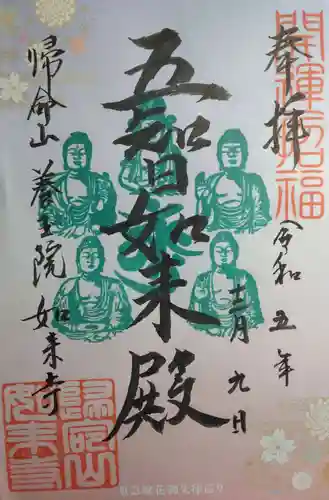 開運招福
奉拝
令和五年
十二月九日
五智如来殿
帰命山養玉院如来寺
帰命山如来寺